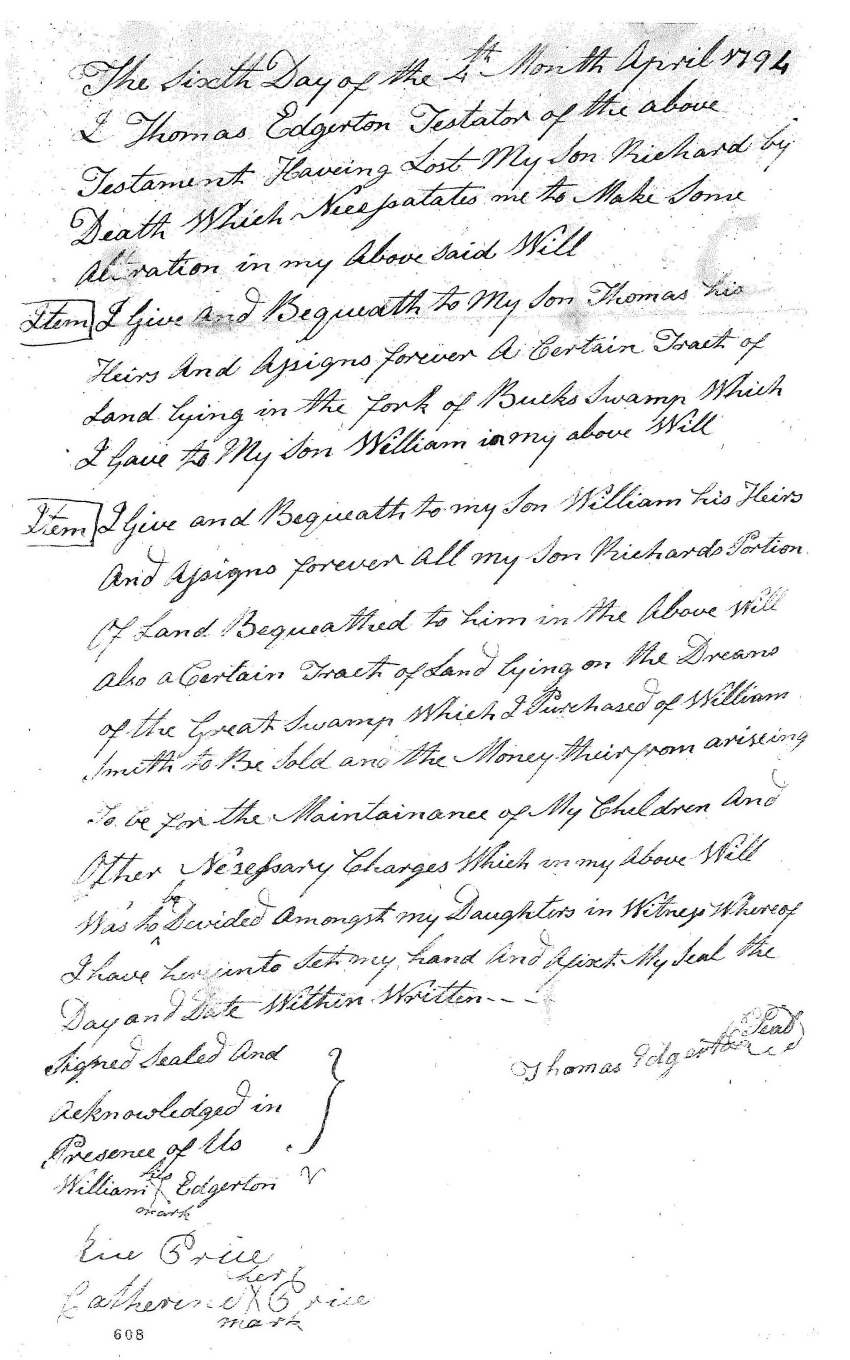 The Sixth Day of the 4th Month April 1794
I Thomas Edgerton Testator of the above
Testament Haveing Lost My Son Richard by
Death Which Nicessatates me to Make Some
Altration in my Above said Will
Item I Give And Bequeath to My Son Thomas his
Heirs And Assigns forever A Certain Tract of
Land lying in the fork of Bucks Swamp Which
I Gave to My Son William in my above Will
Item I Give and Bequeath to my Son William his Heirs
And Assigns forever All my Son Richards Portion
Of Land Bequeathed to him in the Above Will
Also a Certain Tract of Land lying on the Dreans
of the Great Swamp Which I Purchased of William
Smith to Be Sold and the Money their from ariseing
To be for the Maintainance of My Children And
Other Nesessary Charges Which in my Above Will
Was to be Devided Amongst my Daughters in Witness Whereof
I have hereunto Set my hand And Afixt My Seal the
Day and Date Within Written - - -
Signed Sealed And
Acknowledged in
Presence of Us
Thomas Edgerton Seal
William his Edgerton
mark
Price
Catherine her X Price
mark
608